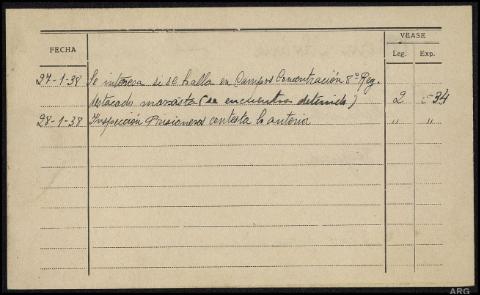 VEASE
FECHA
Leg. Exp.
27-1-38 Se interesa si se halla en Campos Concentración 8ª Reg.
destacado marxista (se encuentra detenido) 2 534
28-1-38 Inspección Prisioneros contesta lo anterior " "
ARG